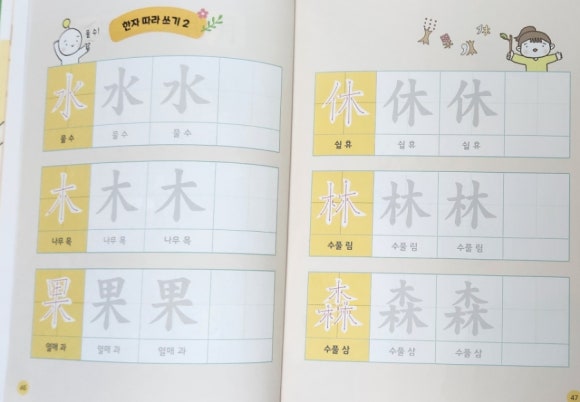 물 수!
한자 따라 쓰기 2
水 水 水
물 수 물 수 물 수
木 木 木
나무 목 나무 목 나무 목
果 果 果
열매 과 열매 과 열매 과
46
休 休 休
쉴 휴 쉴 휴 쉴 휴
林 林 林
수풀 림 수풀 림 수풀 림
森 森 森
수풀 삼 수풀 삼 수풀 삼
47